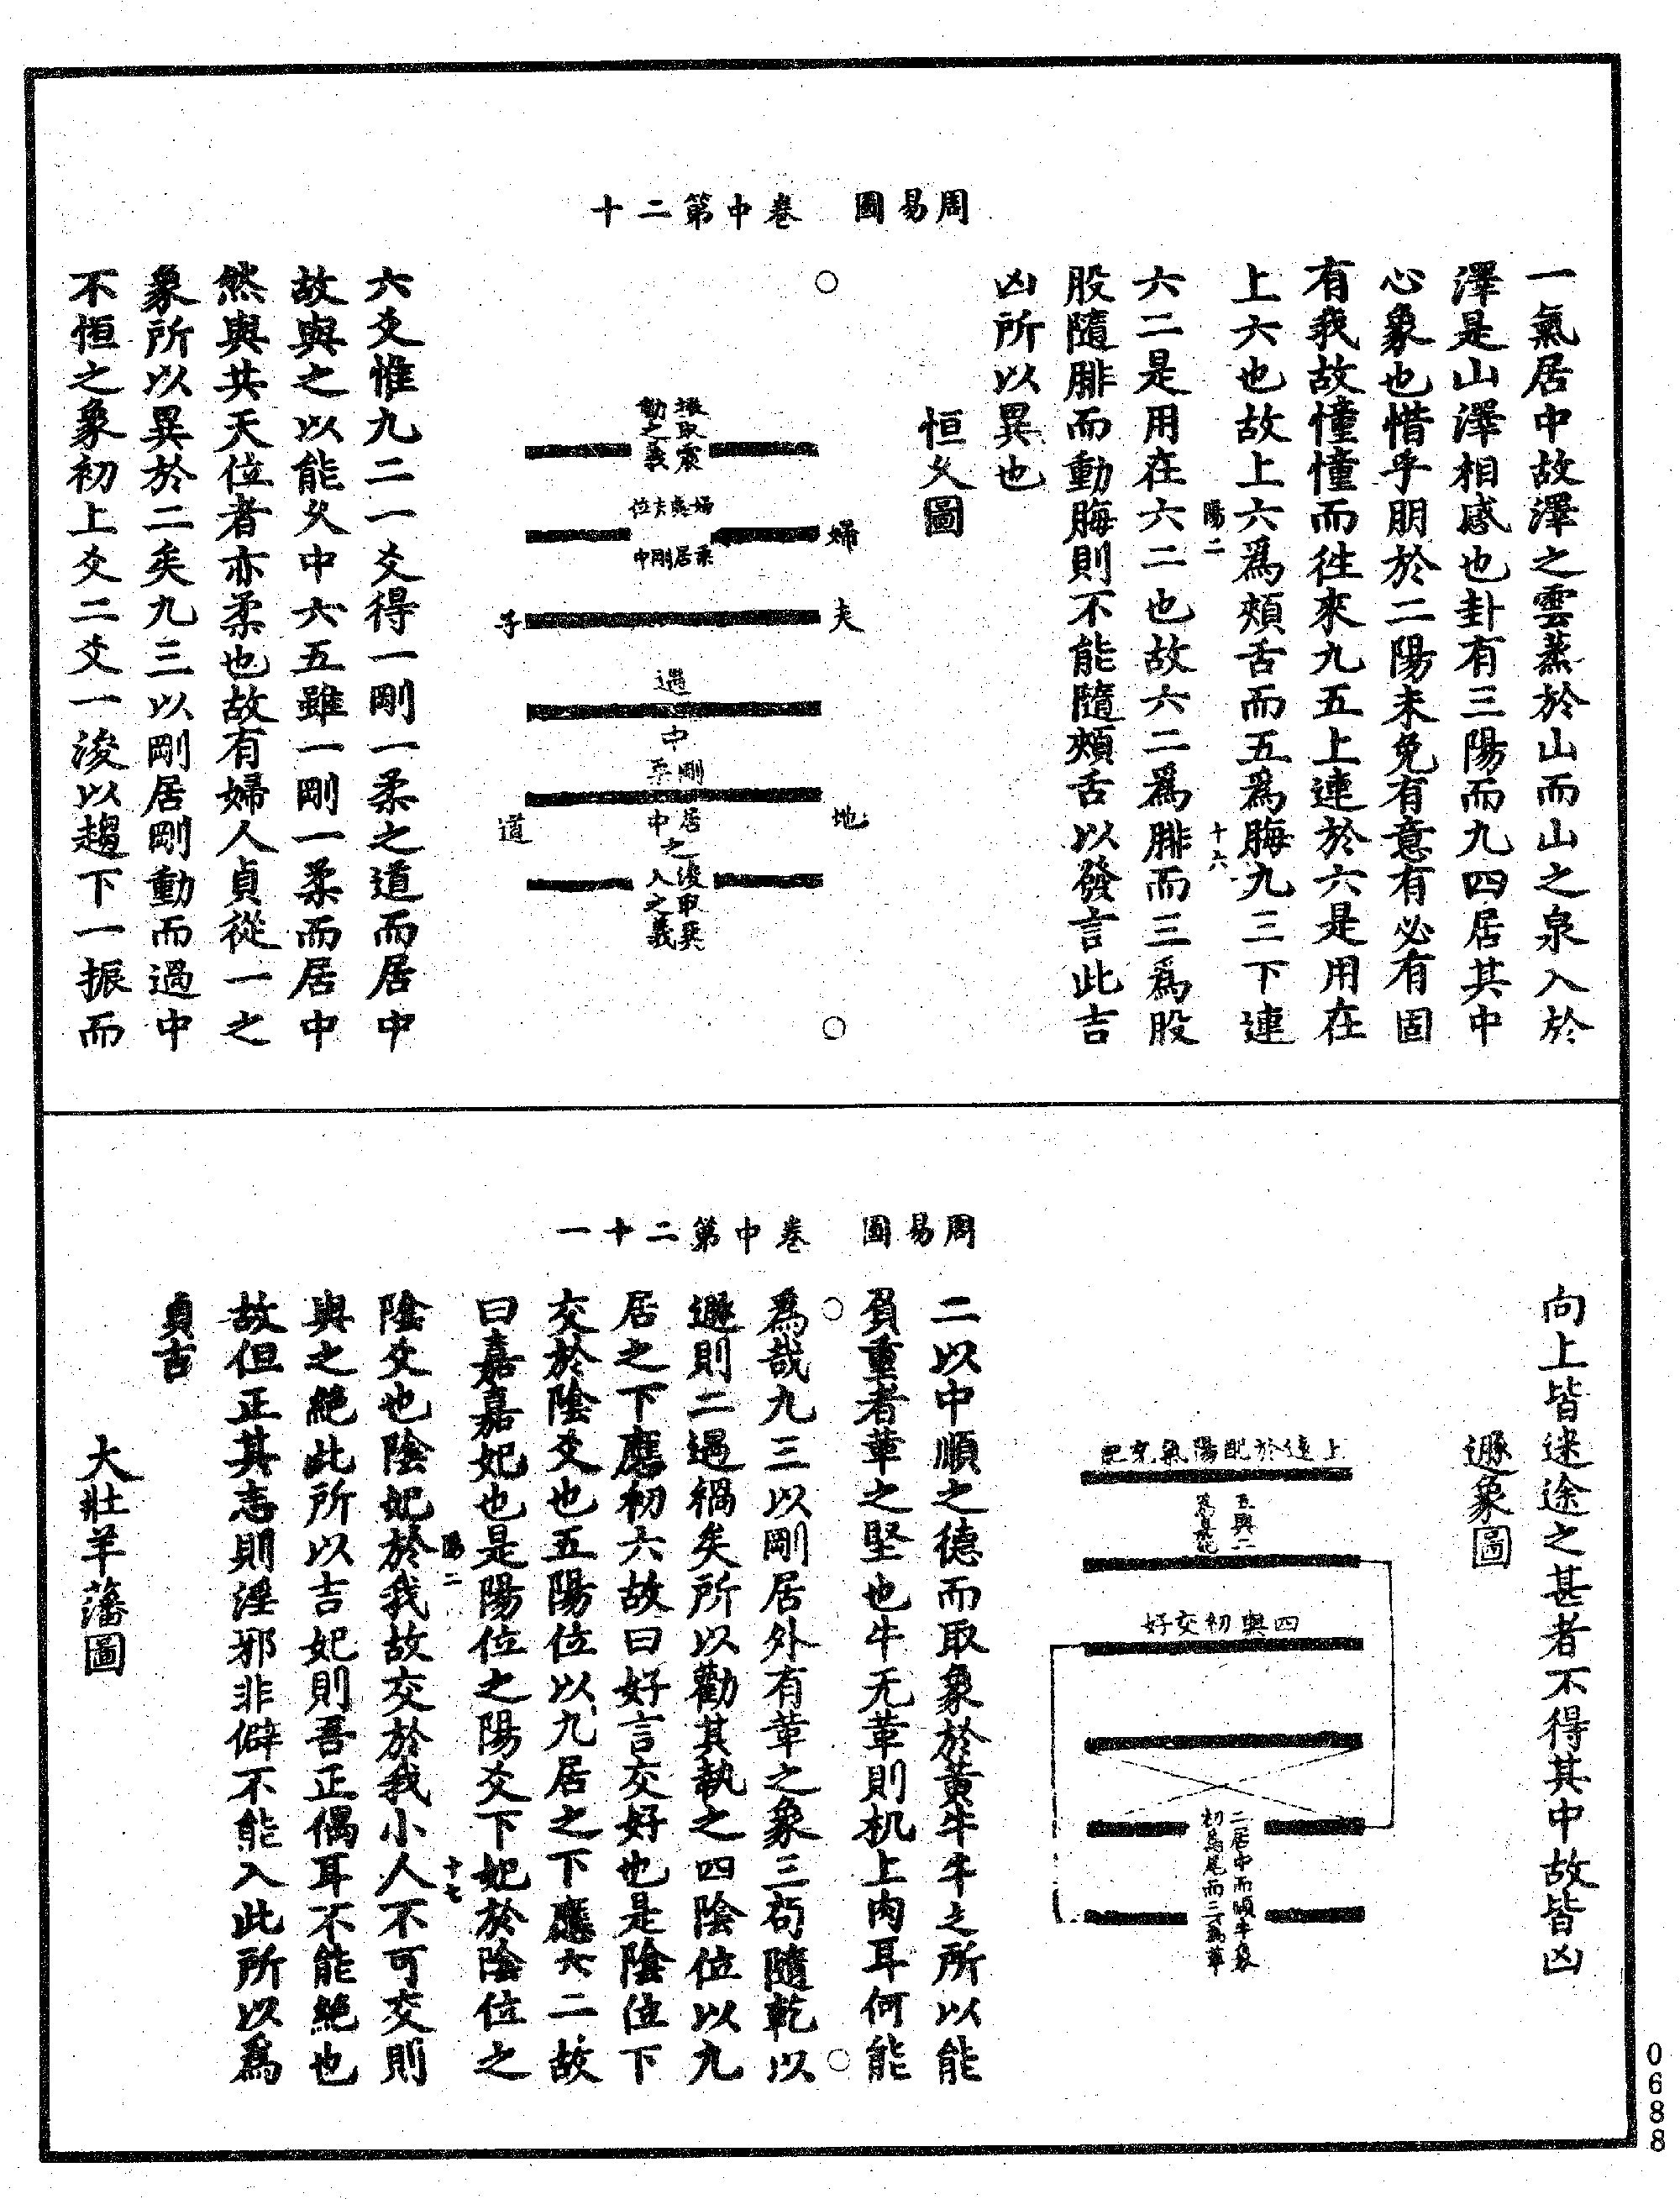 周易圖　卷中第二十
一氣居中故澤之雲蒸於山而山之泉入於
澤是山澤相感也卦有三陽而九四居其中
心象也惜乎朋於二陽未免有意有必有固
有我故憧憧而徃來九五上連於六是用在
上六也故上六爲頰舌而五爲脢九三下連
陽二　十六
六二是用在六二也故六二爲腓而三爲股
股隨腓而動脢則不能隨頰舌以發言此吉
凶所以異也
恒久圖
振取震
動之義
婦應夫位
柔居剛中
婦
夫
子
過
中
剛
平
居
中
之
浚取巽
入之義
地
道
六爻惟九二一爻得一剛一柔之道而居中
故與之以能久中六五雖一剛一柔而居中
然與其天位者亦柔也故有婦人貞從一之
象所以異於二矣九三以剛居剛動而過中
不恒之象初上爻二爻一浚以趨下一振而
周易圖　卷中第二十一
向上皆迷途之甚者不得其中故皆凶
遯象圖
上遠於配陽氣充肥
五與二
四與初交好
二居中而順牛象
初爲尾而三爲革
二以中順之德而取象於黃牛牛之所以能
負重者革之堅也牛无革則机上肉耳何能
爲哉九三以剛居外有革之象三苟隨乾以
遯則二遇禍矣所以勸其執之四陰位以九
居之下應初六故曰好言交好也是陰位下
交於陰爻也五陽位以九居之下應六二故
曰嘉嘉妃也是陽位之陽爻下妃於陰位之
陽二　十七
陰爻也陰妃於我故交於我小人不可交則
與之絕此所以吉妃則吾正偶耳不能絕也
故但正其志則淫邪非僻不能入此所以爲
貞吉
大壯羊藩圖
0688